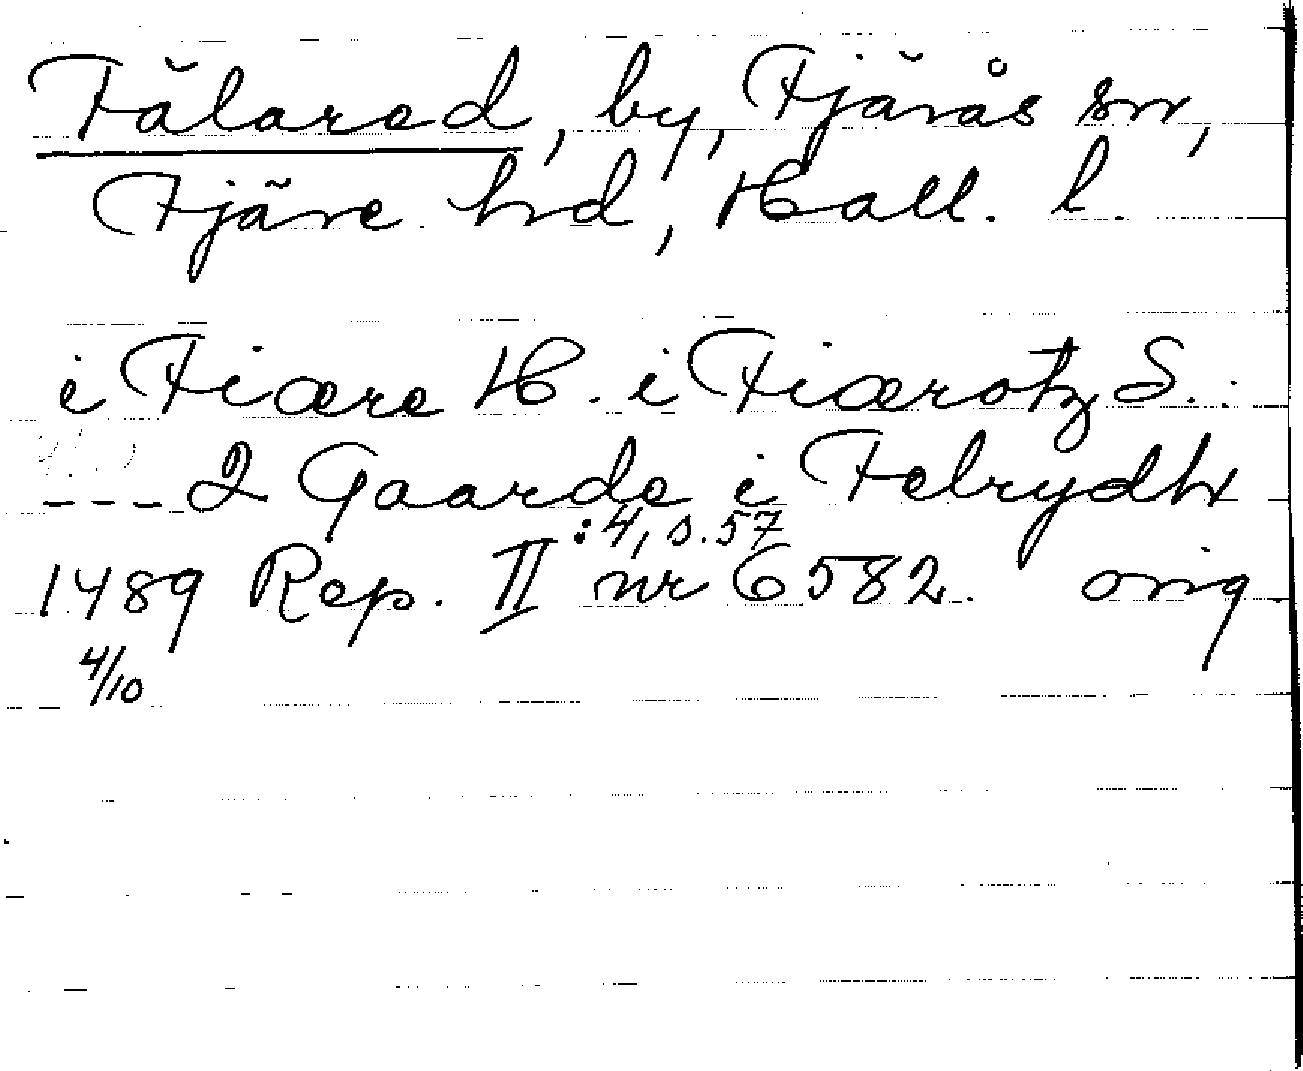 Fälared, by, Fjärås sn,
Fjäre hd, Hall. l.
i Fiære H. i Fiærotz S. :
--- 2 Gaarde i Felrydh
:4, s. 57
1489 Rep. II nr 6582. orig
4/10